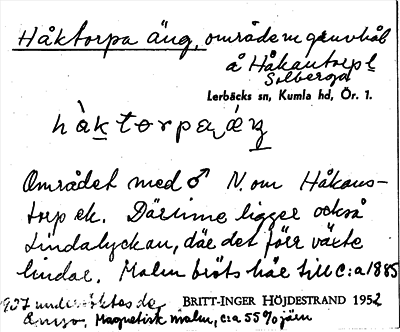 Håktorpa äng, område m gruvhål
å Håkantorp 1
Solberga
Lerbäcks sn, Kumla hd, Ör. 1.
hàktorpaäŋ
Området med ♂ N. om Håkans-
torp ek. Därinne ligger också
Lindalyckan, där det förr växte
lindar. Malm bröts här till c:a 1885
1907 undersöktes de
BRITT-INGER HÖJDESTRAND 1952
ännu. Magnetisk malm, c:a 55 % järn